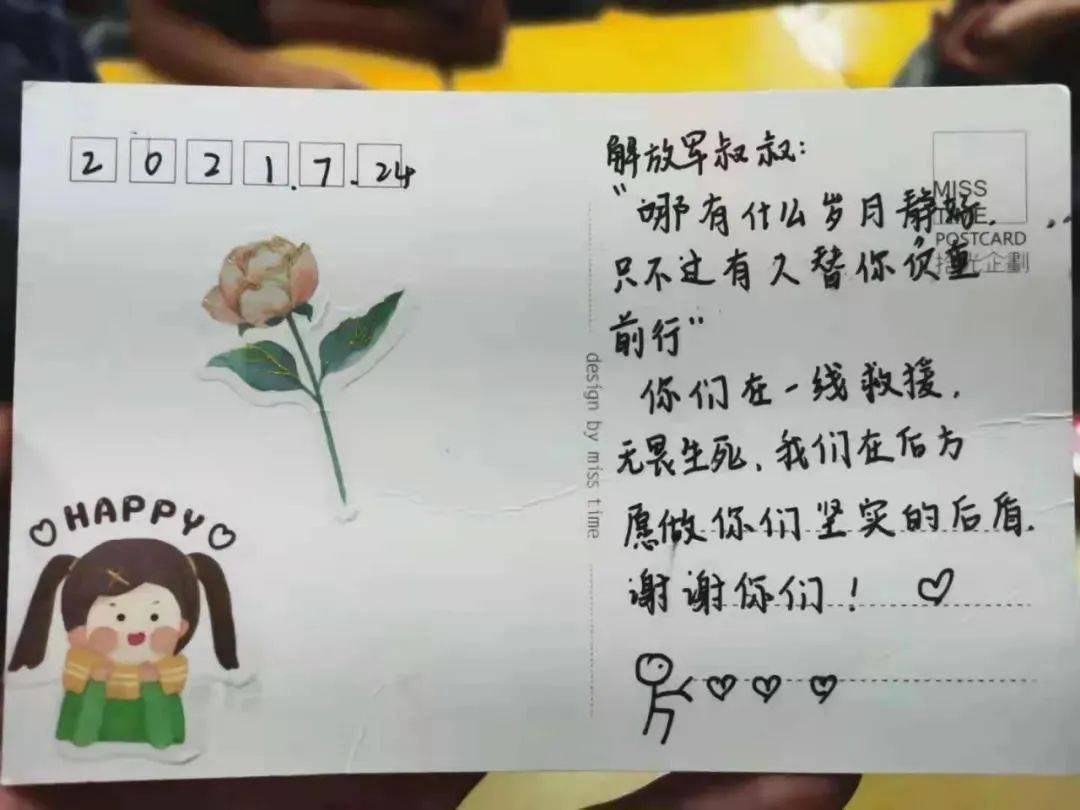 2021.7.24
HAPPY
design by miss time
MISS
TIME
POSTCARD
拾光企劃
解放军叔叔：
“哪有什么岁月静好，
只不过有人替你负重
前行”
你们在一线救援，
无畏生死，我们在后方
愿做你们坚实的后盾.
谢谢你们！